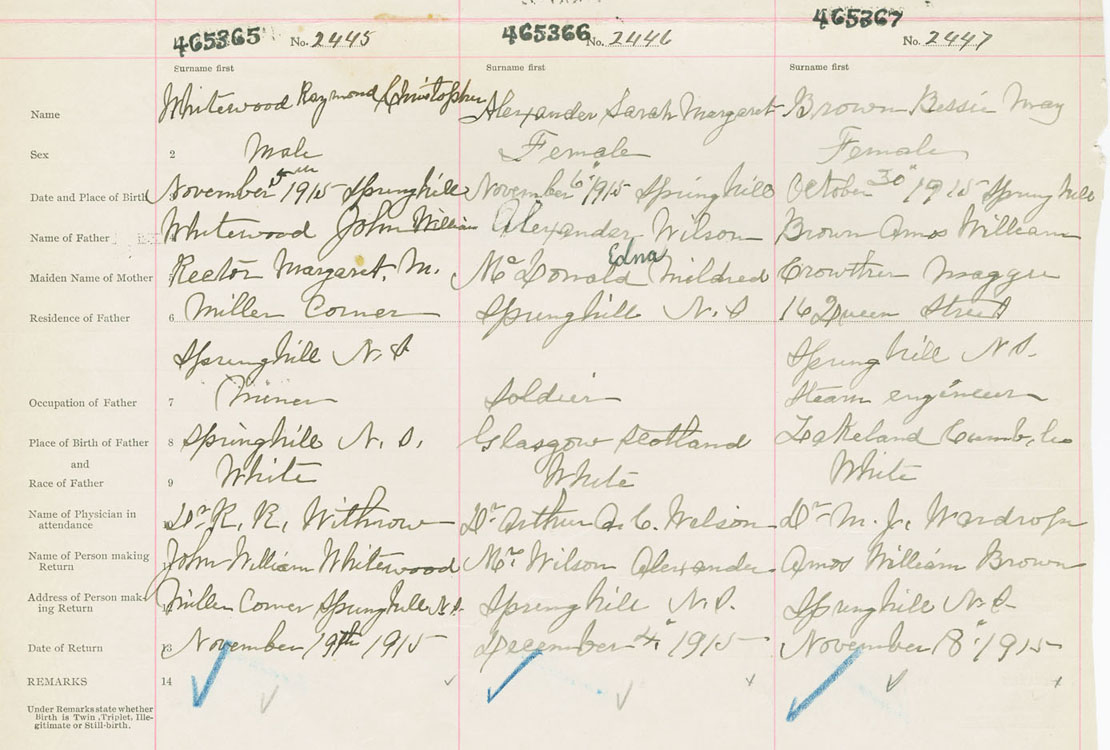 465365 No. 2445 465366 No. 2446 465367 No. 2447
Surname first Surname first Surname first
Name Whitewood Raymond Christopher Alexander Sarah Margaret Brown Bessie May
Sex 2 Male Female Female
Date and Place of Birth November 1915 Springhill November 6" 1915 Springhill October 30" 1915 Springhill
Name of Father Whitewood John William Alexander Wilson Brown Amos William
Edna
Maiden Name of Mother Rector Margaret. M. Mc Donald Mildred Crowther Maggie
Residence of Father 6 Miller Corner Springhill N. S 16 Queen Street
Springhill N. S Springhill N S.
Occupation of Father 7 Miner Soldier Steam engineer
Place of Birth of Father 8 Springhill N. S. Glasgow Scotland Lakeland Cumb, Co
and
Race of Father 9 White White White
Name of Physician in
attendance 10 Dr R. R. Withrow Dr Arthur Dr M. J. Wardrope
Name of Person making
Return John William Whitewood Mr Wilson Alexander Amos William Brown
Address of Person mak-
ing Return Miller Corner Springhill N. S. Springhill N. S. Springhill N. S
Date of Return 13 November 19th 1915 December 4" 1915 November 8" 1915
REMARKS 14
Under Remarks state whether
Birth is Twin, Triplet, Ille-
gitimate or Still-birth.